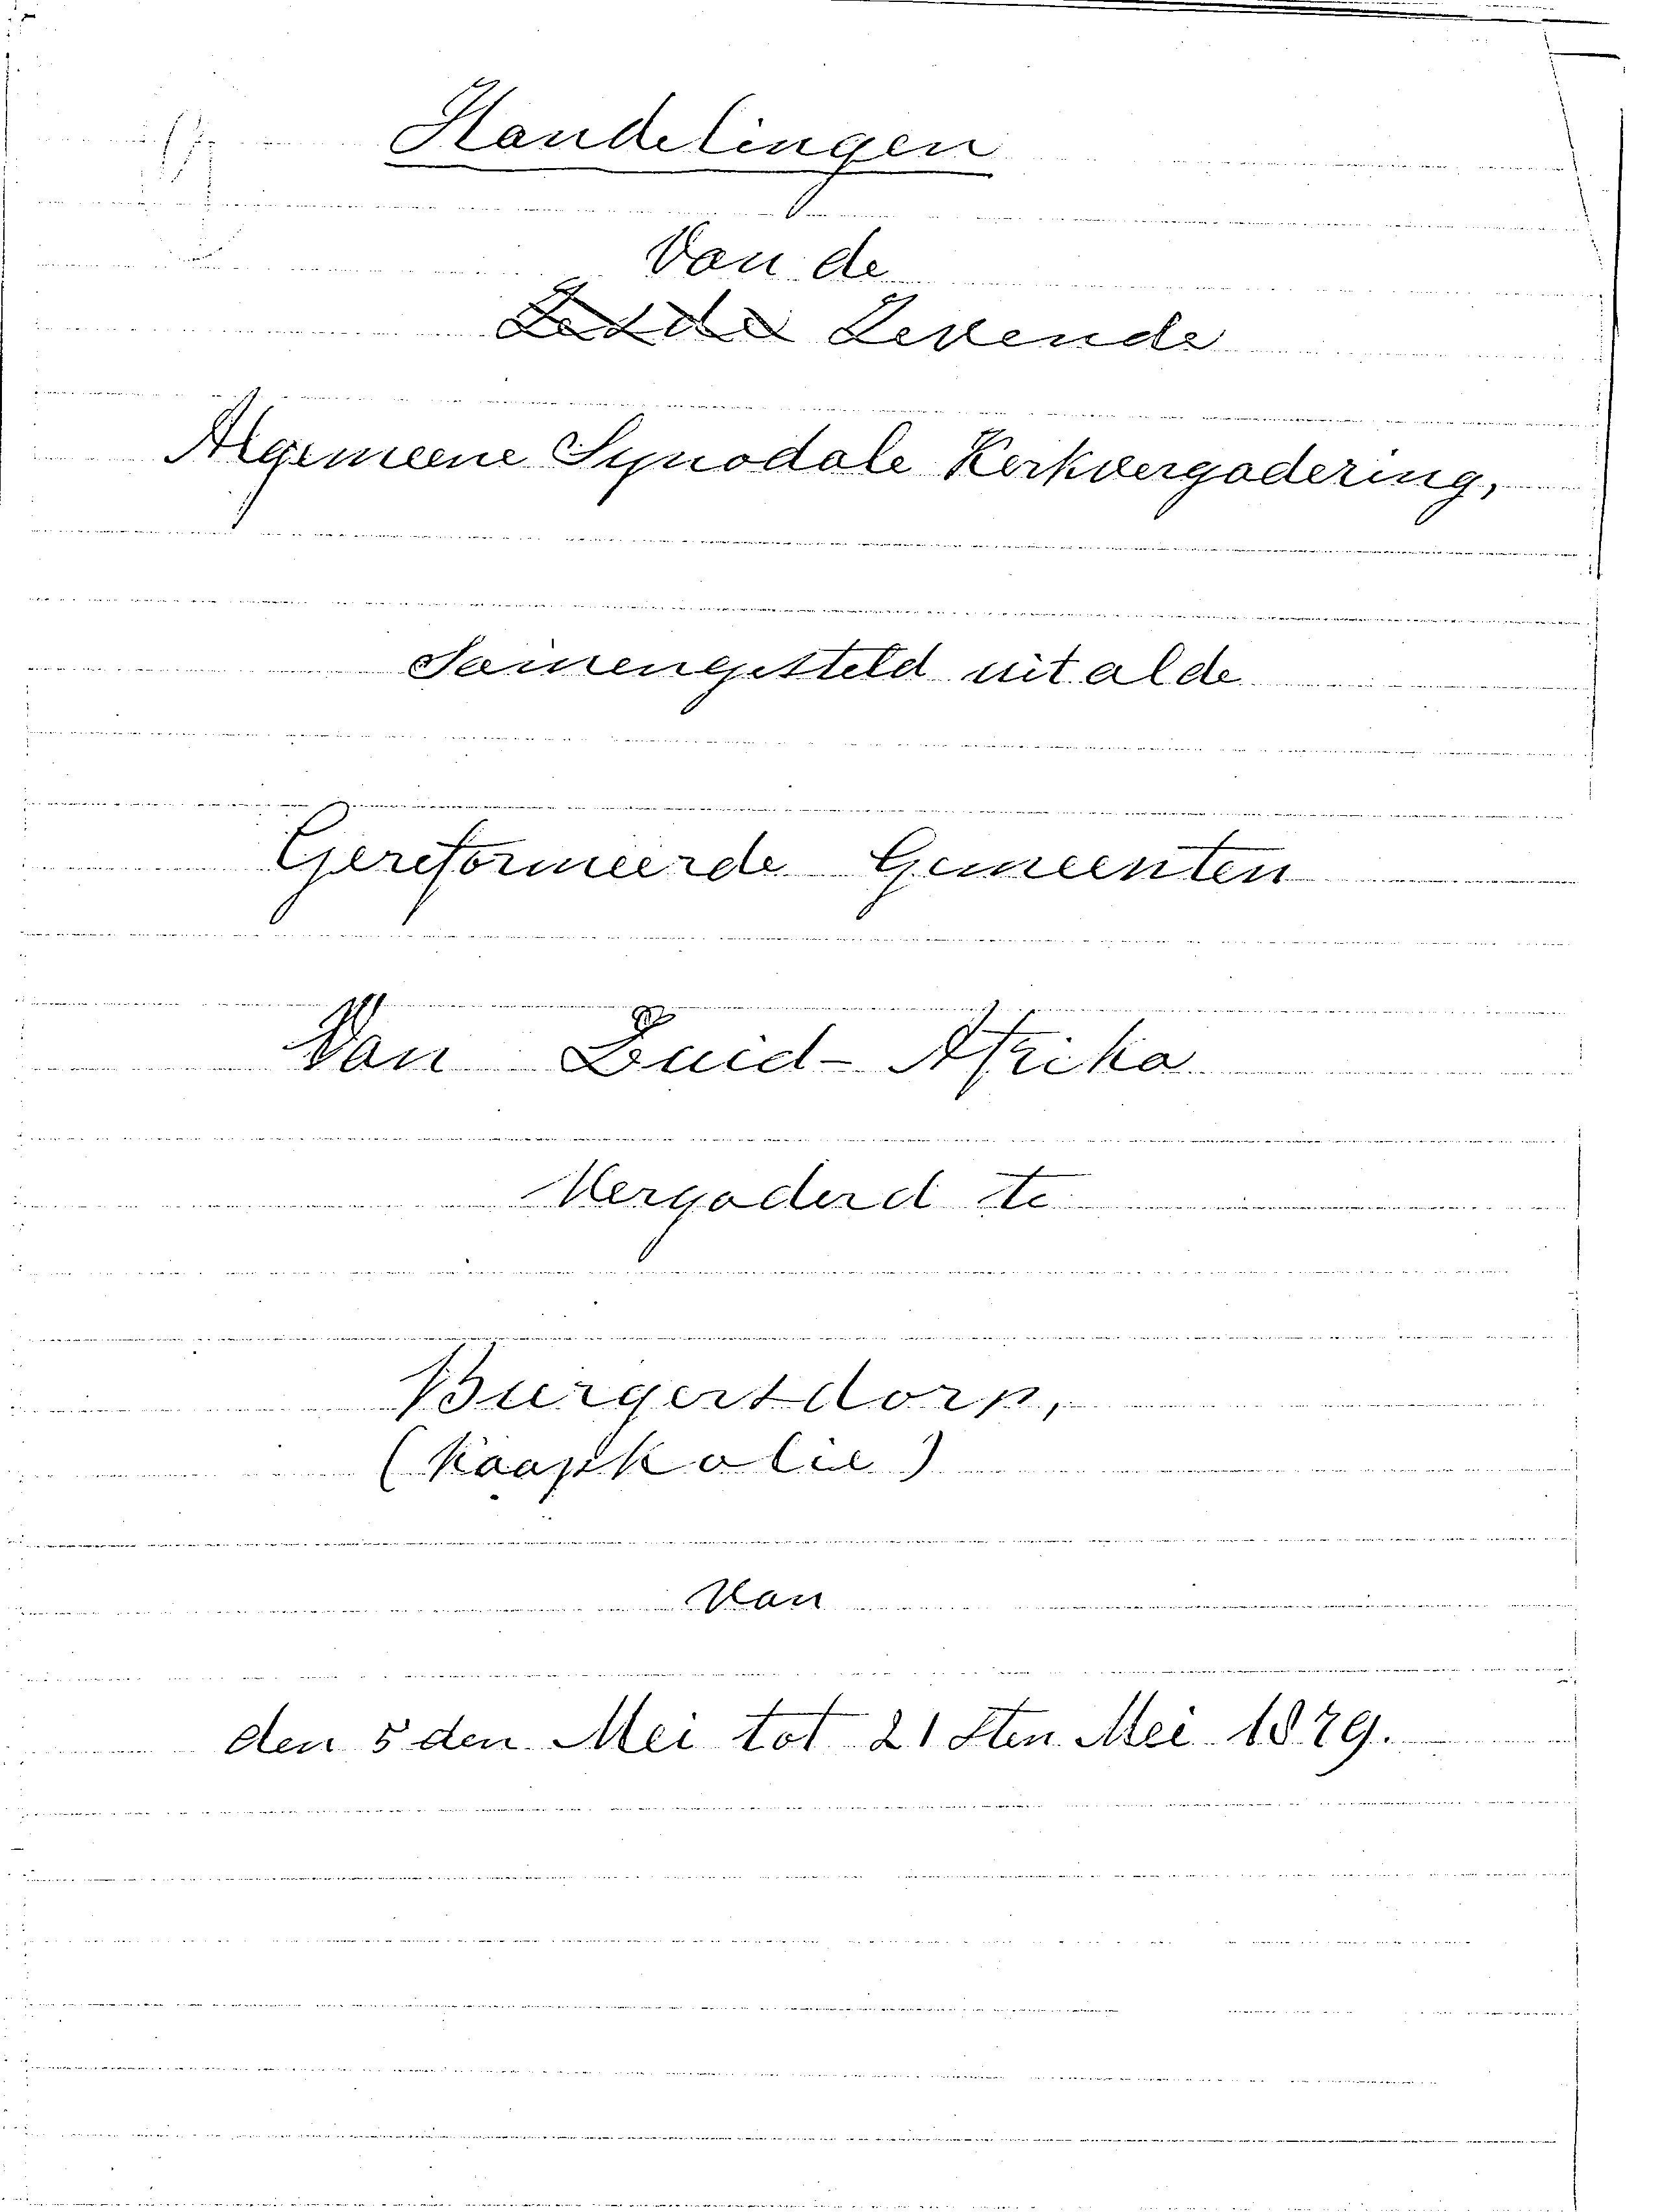 Handelingen
Van de
Zesde Zevende
Algemeene Synodale Kerkvergadering,
Samengesteld uit al de
Gereformeerde Gemeenten
Van Zuid-Afrika
Vergaderd te
Burgersdorp,
(Kaapkolie)
Van
den 5 den Mei tot 21 Sten Mei 1879.